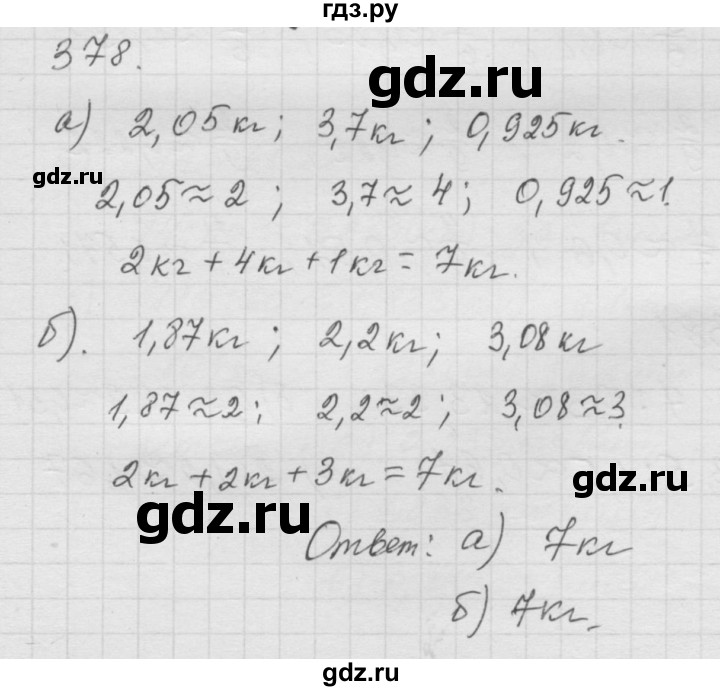 гдз.ру
378.
gdz.ru
а) 2,05 кг; 3,7 кг; 0,925 кг.
gdz.ru
2,05 ≈ 2; 3,7 ≈ 4; 0,925 ≈ 1.
2 кг + 4 кг + 1 кг = 7 кг.
б). 1,87 кг; 2,2 кг; 3,08 кг
1,87 ≈ 2; 2,2 ≈ 2; 3,08 ≈ 3.
2 кг + 2 кг + 3 кг = 7 кг.
gdz.ru
gdz.ru
Ответ: а) 7 кг
б) 7 кг.
gdz.ru